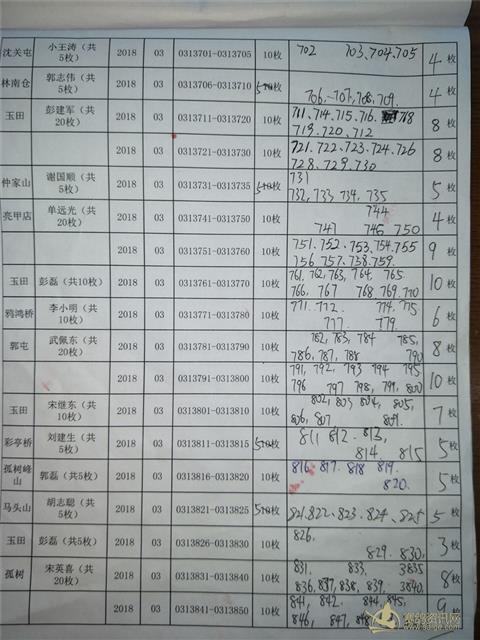 沈关屯 小王涛（共5枚） 2018 03 0313701-0313705 10枚 702 703、704、705 4枚
林南仓 郭志伟（共5枚） 2018 03 0313706-0313710 5枚 706、707、708、709 4枚
玉田 彭建军（共20枚） 2018 03 0313711-0313720 10枚 711、714、715、716、718 719、720、712 8枚
2018 03 0313721-0313730 10枚 721、722、723、724、726 728、729、730 8枚
仲家山 谢国顺（共5枚） 2018 03 0313731-0313735 5枚 731 732、733、734、735 5枚
亮甲店 单远光（共20枚） 2018 03 0313741-0313750 10枚 744 747 746 750 4枚
2018 03 0313751-0313760 10枚 751、752、753、754、755 756、757、758、759 9枚
玉田 彭磊（共10枚） 2018 03 0313761-0313770 10枚 761、762、763、764、765 766、767 768、769、770 10枚
鸦鸿桥 李小明（共10枚） 2018 03 0313771-0313780 10枚 771、772 774、775 777、779 6枚
郭屯 武佩东（共20枚） 2018 03 0313781-0313790 10枚 782、783、784 785、786、787、788 790 8枚
2018 03 0313791-0313800 10枚 791、792、793 794 795 796 797 798、799、800 10枚
玉田 宋继东（共10枚） 2018 03 0313801-0313810 10枚 802、803 804、805、806、807 809、 7枚
彩亭桥 刘建生（共5枚） 2018 03 0313811-0313815 5枚 811 812、813、814、815 5枚
孤树峰山 郭磊（共5枚） 2018 03 0313816-0313820 10枚 816、817、818 819、820、 5枚
马头山 胡志聪（共5枚） 2018 03 0313821-0313825 5枚 821、822、823、824、825 5枚
玉田 彭磊（共5枚） 2018 03 0313826-0313830 10枚 826、829、830、 3枚
孤树 宋英喜（共20枚） 2018 03 0313831-0313840 10枚 831、833、3835 836、837、838、839、3840、 8枚
2018 03 0313841-0313850 10枚 841、842、844、845、846、847、848 9枚
赛鸽资讯网